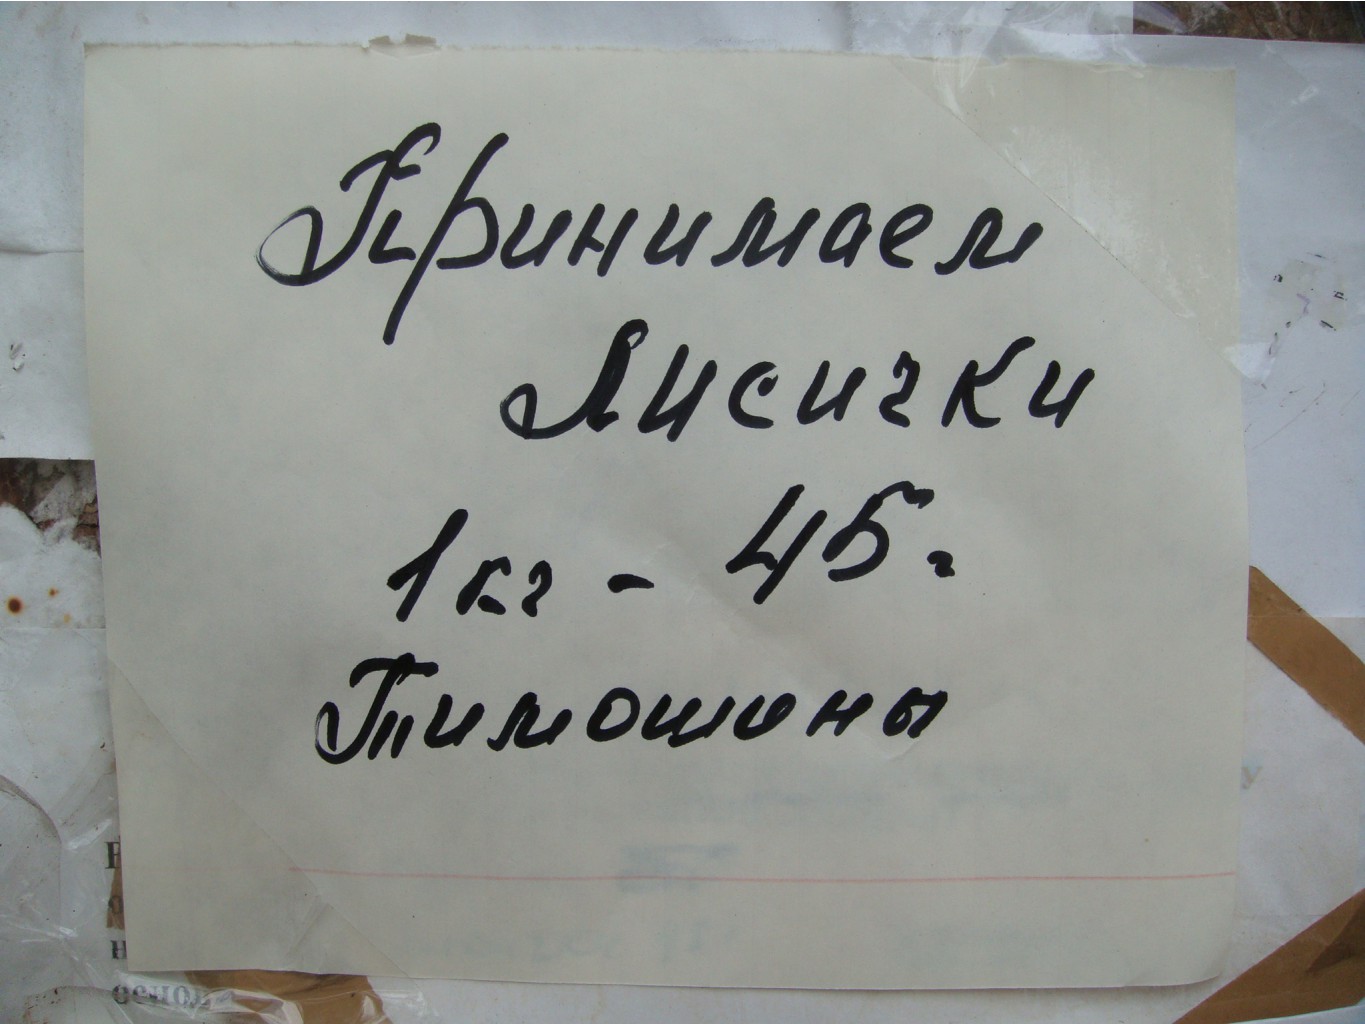 Принимаем
Лисички
1кг - 45г
Тимошины